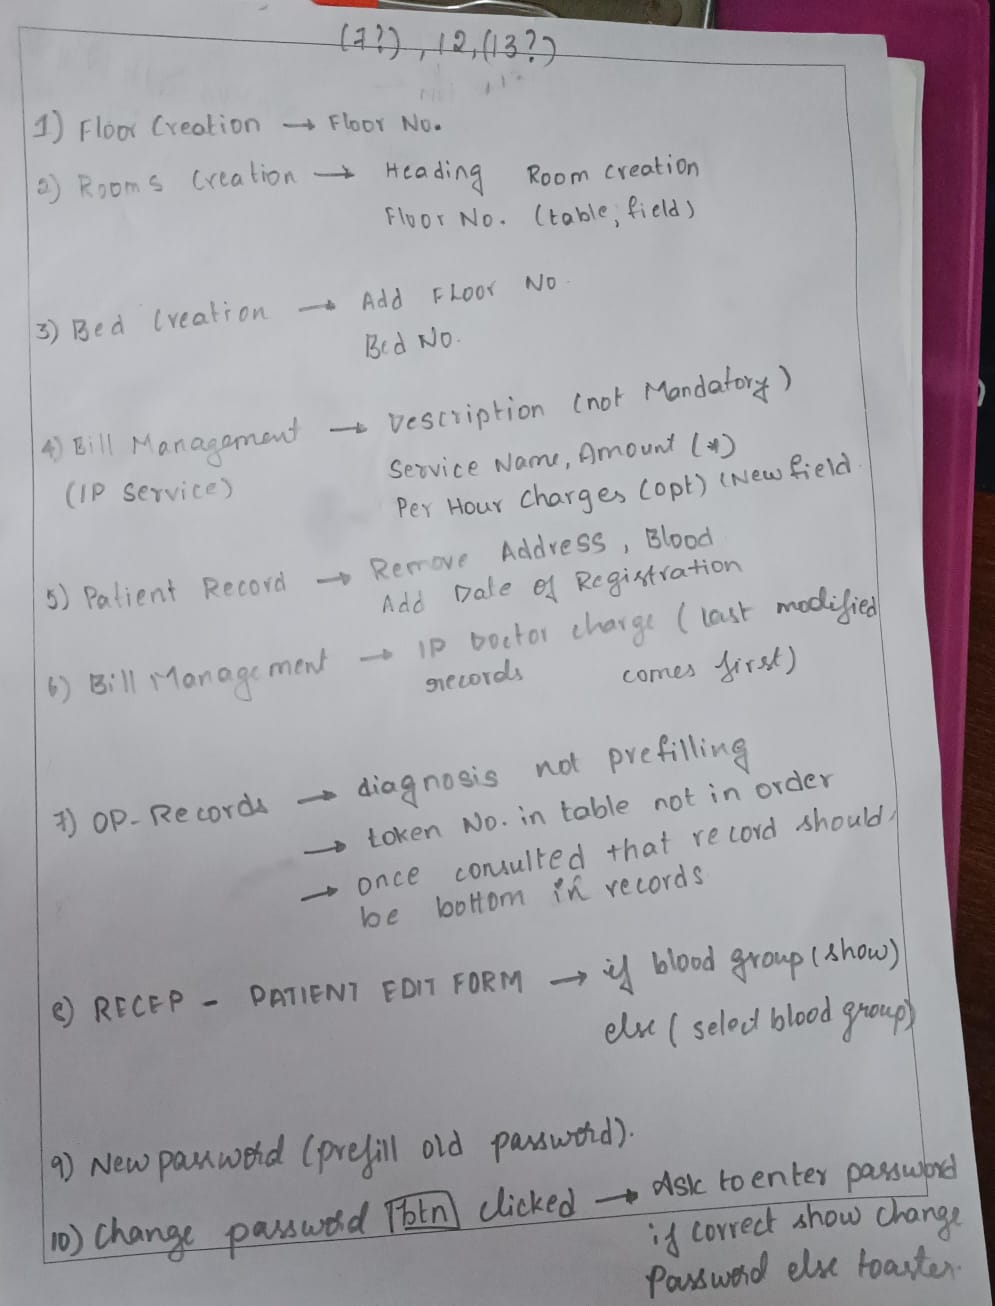 (7?), 12, (13?)
1) Floor Creation → Floor No.
2) Rooms Creation → Heading Room creation
Floor No. (table, field)
3) Bed Creation → Add Floor No.
Bed No.
4) Bill Management → Description (not Mandatory)
(IP Service) Service Name, Amount (*)
Per Hour Charges (opt) (New field
5) Patient Record → Remove Address, Blood
Add Date of Registration
6) Bill Management → IP Doctor charge (last modified
records comes first)
7) OP-Records → diagnosis not prefilling
→ token No. in table not in order
→ once consulted that record should
be bottom in records
8) RECEP - PATIENT EDIT FORM → if blood group (show)
else (select blood group)
9) New password (prefill old password).
10) Change password btn clicked → Ask to enter password
if correct show change
Password else toaster.